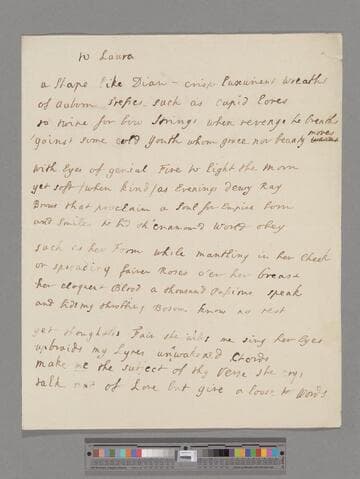 to Laura
a Shape like Dian - crisp Luxuriant wreaths
of auborn Tresses such as Cupid loves
to twine for bow Strings when revenge he breaths
'gainst some cold Youth whom grace nor beauty moves
With Eyes of genial Fire to light the Morn
yet soft (when kind) as Evenings dewy Ray
Brows that proclaim a Soul for Empire born
and Smiles to bid th'enamour'd World obey
such is her Form while mantling in her Cheek
or spreading fairer Roses o'er her breast
her eloquent Blood a thousand Passions speak
and bids my throbbing Bosom know no rest
yet thoughtless Fair she bids me sing her Eyes
upbraids my Lyres unwaken'd Chords
make me the subject of thy Verse she crys
talk not of Love but give a loose to Words